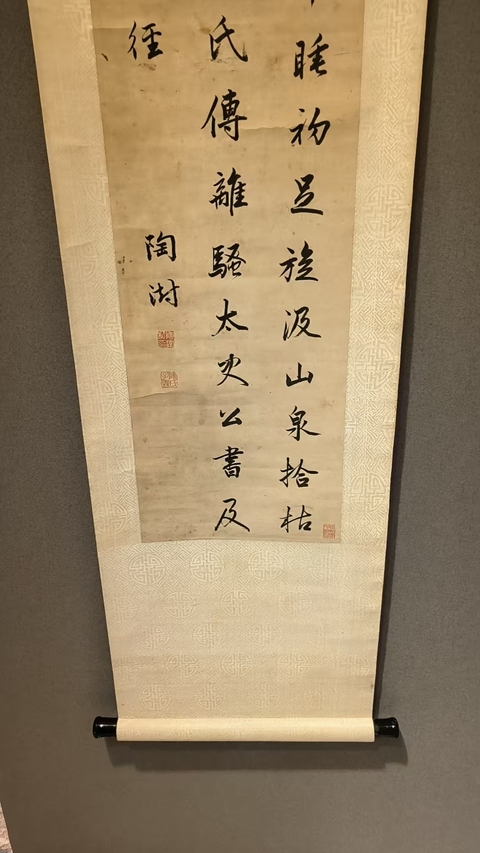 睡初足旋汲山泉拾枯
氏傳離騷太史公書及
徑
陶澍